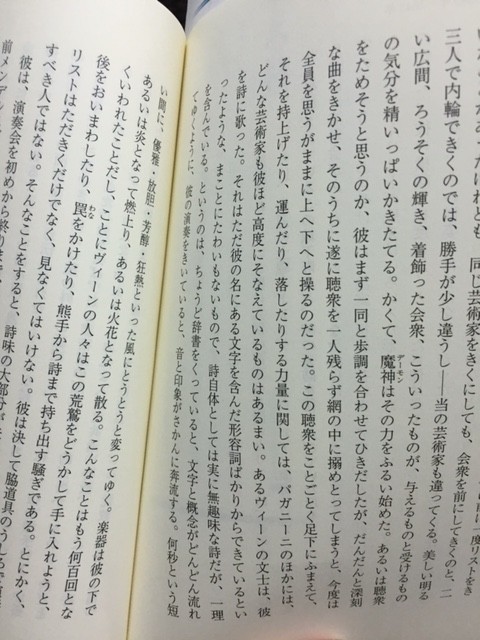 同じ芸術家をきくにしても、会衆を前にしてきくのと、二
三人で内輪できくのでは、勝手が少し違うし――当の芸術家も違ってくる。美しい明る
い広間、ろうそくの輝き、着飾った会衆、こういったものが、与えるものと受けるもの
の気分を精いっぱいかきたてる。かくて、魔神はその力をふるい始めた。あるいは聴衆
デーモン
をためそうと思うのか、彼はまず一同と歩調を合わせてひきだしたが、だんだんと深刻
な曲をきかせ、そのうちに遂に聴衆を一人残らず網の中に搦めとってしまうと、今度は
全員を思うがままに上へ下へと操るのだった。この聴衆をことごとく足下にふまえて、
それを持上げたり、運んだり、落したりする力量に関しては、パガニーニのほかには、
どんな芸術家も彼ほど高度にそなえているものはあるまい。あるヴィーンの文士は、彼
を詩に歌った。それはただ彼の名にある文字を含んだ形容詞ばかりからできているとい
ったような、まことにたわいもないもので、詩自体としては実に無趣味な詩だが、一理
を含んでいる。というのは、ちょうど辞書をくっていると、文字と概念がどんどん流れ
てゆくように、彼の演奏をきいていると、音と印象がさかんに奔流する。何秒という短
い間に、優雅・放胆・芳醇・狂熱といった風にとうとうと変ってゆく。楽器は彼の下で
あるいは炎となって燃上り、あるいは火花となって散る。こんなことはもう何百回とな
くいわれたことだし、ことにヴィーンの人々はこの荒鷲をどうかして手に入れようと、
後をおいまわしたり、罠をかけたり、熊手から詩まで持ち出す騒ぎである。とにかく、
わな
リストはただきくだけでなく、見なくてはいけない。彼は決して脇道具のうしろで
すべき人ではない。そんなことをすると、詩味の大部分
彼は、演奏会を初めから終りまで
前メンデル